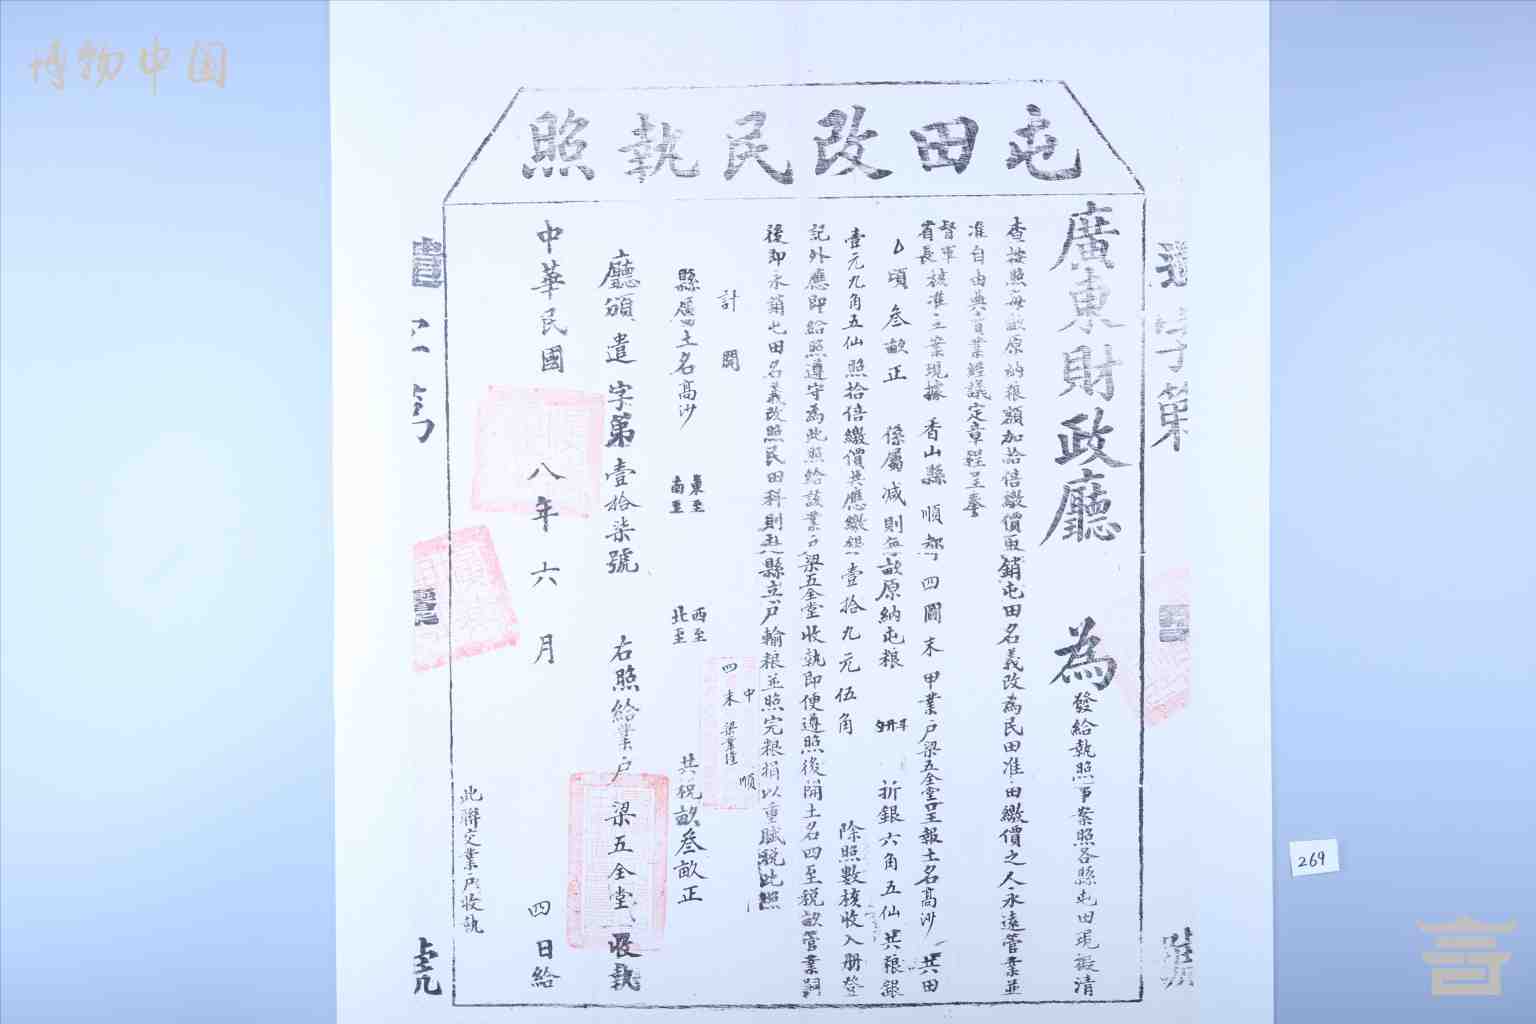 博物中国
屯田改民執照
廣東財政廳 為發給執照事案照各縣屯田現經清
查按照每畝原納粮額加拾倍繳價取銷屯田名義改為民田准由繳價之人永遠管業並
准自由典賣業經議定章程呈奉
督軍
省長核准立業現據 香山縣 順都 四圖末甲業戶梁五全堂呈報土名高沙 共田
頃叁畝正 係屬减則每畝原納屯粮 折銀六角五仙共粮銀
壹元九角五仙照拾倍繳價共應繳銀壹拾九元伍角 除照數核收入册登
記外應即給照遵守為此照給該業戶梁五全堂收執即便遵照後開土名四至税畝管業嗣
後即永銷屯田名義改照民田科則赴縣立戶輸粮並照完粮捐以重賦税此照
計開
縣屬土名高沙
東至
南至
西至
北至
共税畝叁畝正
中 順
四 末 梁業隆
廳頒遣字第壹拾柒號 右照給業戶梁五全堂收執
中華民國 八年六月 四日給
此聯交業戶收執
遣字第 號
269